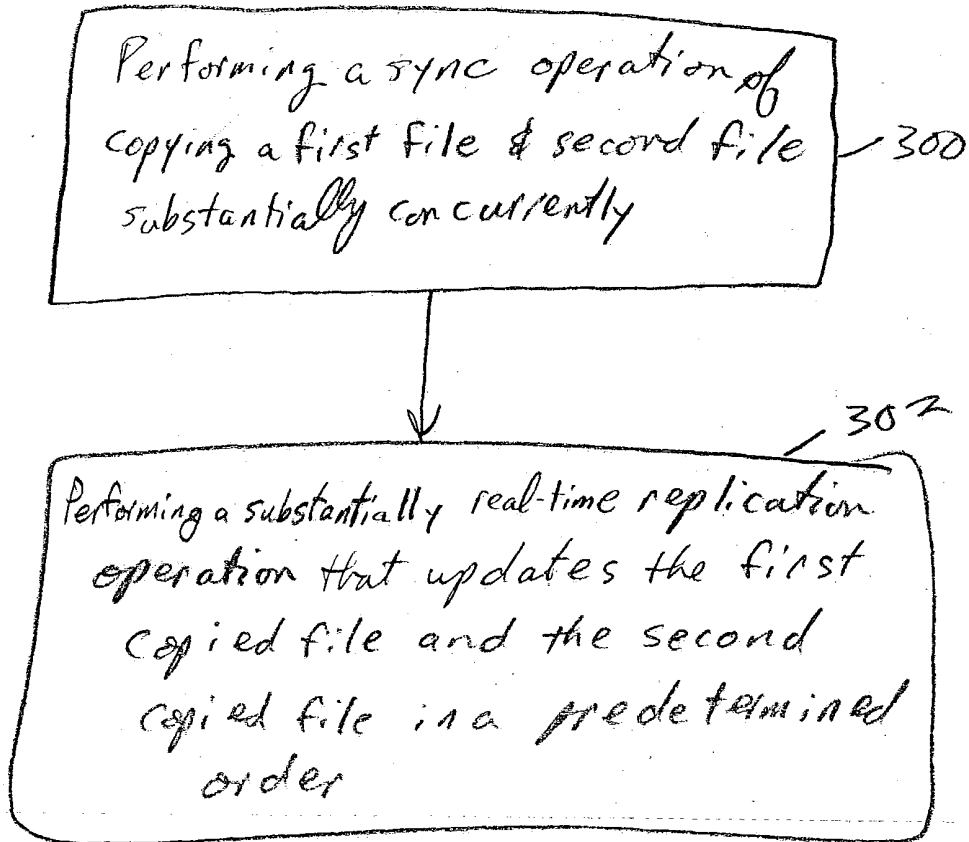 Performing a sync operation of
copying a first file & second file
substantially concurrently
300
302
Performing a substantially real-time replication
operation that updates the first
copied file and the second
copied file in a predetermined
order